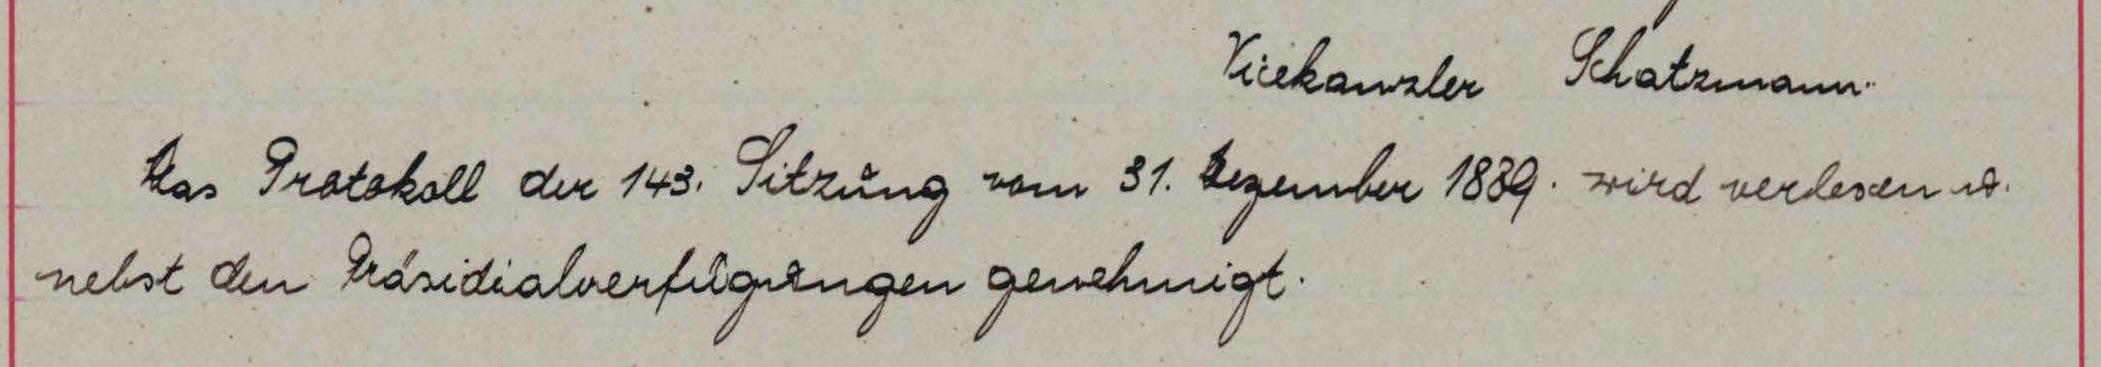 Vicekanzler Schatzmann.
Das Protokoll der 143. Sitzung vom 31. Dezember 1889. wird verlesen u.
nebst den Präsidialverfügungen genehmigt.